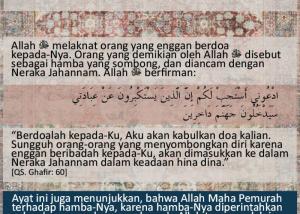 Allah ﷻ melaknat orang yang enggan berdoa
kepada-Nya. Orang yang demikian oleh Allah ﷻ disebut
sebagai hamba yang sombong, dan diancam dengan
Neraka Jahannam. Allah ﷻ berfirman:
ادْعُونِي أَسْتَجِبْ لَكُمْ إِنَّ الَّذِينَ يَسْتَكْبِرُونَ عَنْ عِبَادَتِي
سَيَدْخُلُونَ جَهَنَّمَ دَاخِرِينَ
“Berdoalah kepada-Ku, Aku akan kabulkan doa kalian.
Sungguh orang-orang yang menyombongkan diri karena
enggan beribadah kepada-Ku, akan dimasukkan ke dalam
Neraka Jahannam dalam keadaan hina dina.”
[QS. Ghafir: 60]
Ayat ini juga menunjukkan, bahwa Allah Maha Pemurah
terhadap hamba-Nya, karena hamba-Nya diperintahkan